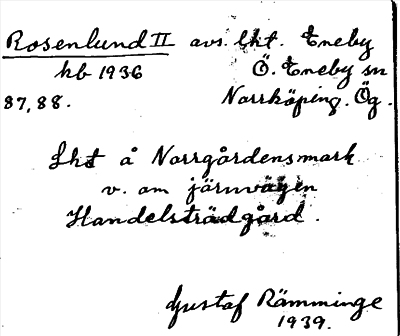 Rosenlund II avs. lht. Eneby
kb 1936 Ö. Eneby sn
87, 88. Norrköping. Ög.
Lht å Norrgårdensmark
v. om järnvägen
Handelsträdgård.
Gustaf Rämminge
1939.